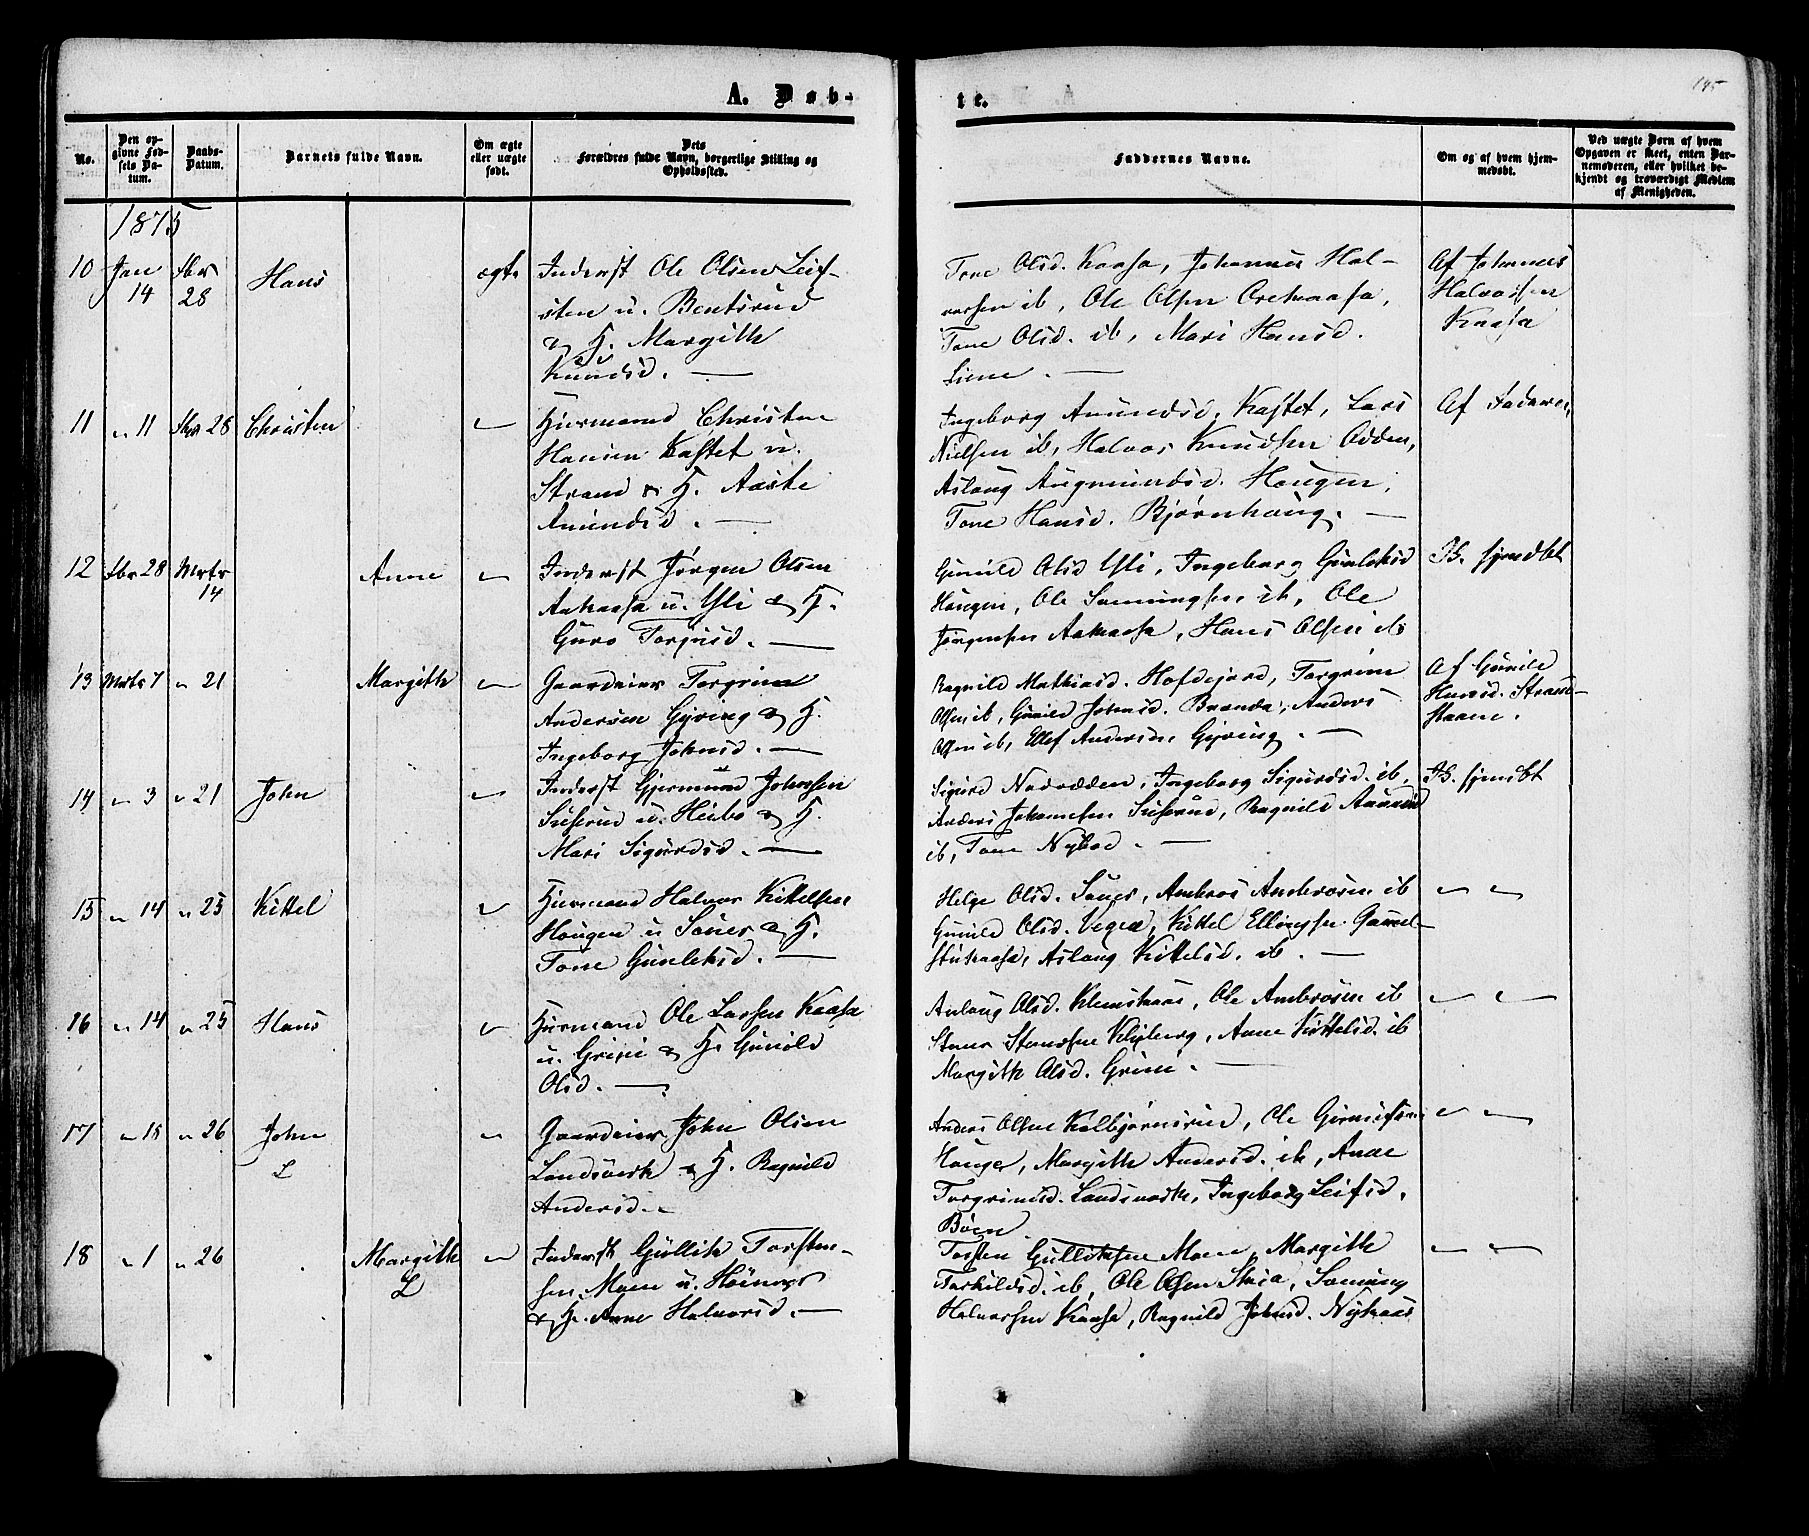 A. Døb-
te.
195
No.
Den opgivne Fødsels Datum.
Daabs-Datum.
Barnets fulde Navn.
Om ægte eller uægte født.
Dets Forældres fulde Navn, borgerlige Stilling og Opholdssted.
Faddernes Navne.
Om og af hvem hjemmedøbt.
Ved uægte Børn af hvem Opgaven er skeet, enten Barnemoderen, eller hvilket bekjendt og troværdigt Medlem af Menigheden.
1875
10 Jan 14 Fbr 28 Hans ægte Inderst Ole Olsen Leif-
sten u. Bentsrud
& H. Margith
Knudsd. —
Tone Olsd. Kaasa, Johannes Hal-
vorsen ib, Ole Olsen Ørekaasa,
Tone Olsd. ib, Mari Hansd.
Liene. —
Af Johannes
Halvorsen
Kaasa
11 " 11 Fbr 28 Christen " Huusmand Christen
Hansen Kastet u.
Strand & H. Aaste
Amundsd. —
Ingeborg Amundsd. Kastet, Lars
Nielsen ib, Halvor Knudsen Odden,
Aslaug Augmundsd. Haugen,
Tone Hansd. Bjørnhaug. —
Af Faderen
12 Fbr 28 Marts 14 Anne " Inderst Jørgen Olsen
Aakaasa u. Yli & H.
Guro Torjusd. —
Gunild Olsd Yli, Ingeborg Gunleksd
Haugen, Ole Sønningsen ib, Ole
Jørgensen Aakaasa, Hans Olsen ib
Ik. hjmdbt
13 Marts 7 " 21 Margith " Gaardeier Torgrim
Andersen Gjvring & H.
Ingeborg Johnsd. —
Ragnild Mathiasd. Hofdejord, Torgrim
Olsen ib, Gunild Johnsd. Brænda, Anders
Olsen ib, Ellef Andersen Gyving. —
Af Gunild
Hansd. Strand-
staane.
14 " 3 " 21 John " Inderst Gjermund Johnsen
Suserud u. Heibø & H.
Mari Sigurdsd. —
Sigurd Nadrædden, Ingeborg Sigurdsd. ib.
Anders Johannesen Suserud, Ragnild
ib, Tone Nybod. —
Ik. hjmdbt
15 " 14 " 25 Kittel " Huusmand Halvor Kittelsen
Haugen u Sauer & H.
Tone Gunleksd. —
Helge Olsd. Sauer, Ambros Ambrosen ib
Gunild Olsd. Vegea, Kittel Ellingsen Gamel-
stukaasa, Aslaug Kittelsd. ib. —
" "
16 " 14 " 25 Hans " Huusmand Ole Larsen Kaasa
u. Grini & H. Gunild
Olsd. —
Anlaug Olsd. Klemskaas, Ole Ambrosen ib
Stener Stenersen Klyberg, Anne Kittelsd. ib
Margith Olsd. Grini. —
" "
17 " 15 " 26 John " Gaardeier John Olsen
L
Landsverk & H. Ragnild
Andersd. "
Anders Olsen Kolbjørnsrud, Ole Gunnufsen
Haugen, Margith Andersd. ib, Anne
Torgrimsd. Landsverk, Ingeborg Leifsd.
Bøen.
" "
18 " 1 " 26 Margith " Inderst Gullik Torsten-
L
sen Moen u. Høimyr
& H. Anne Halvorsd. —
Torsten Gulliksen Moen, Margith
Torkildsd. ib, Ole Olsen Stua, Sønning
Halvorsen Kaasa, Ragnild Johnsd. Nykaas
" "